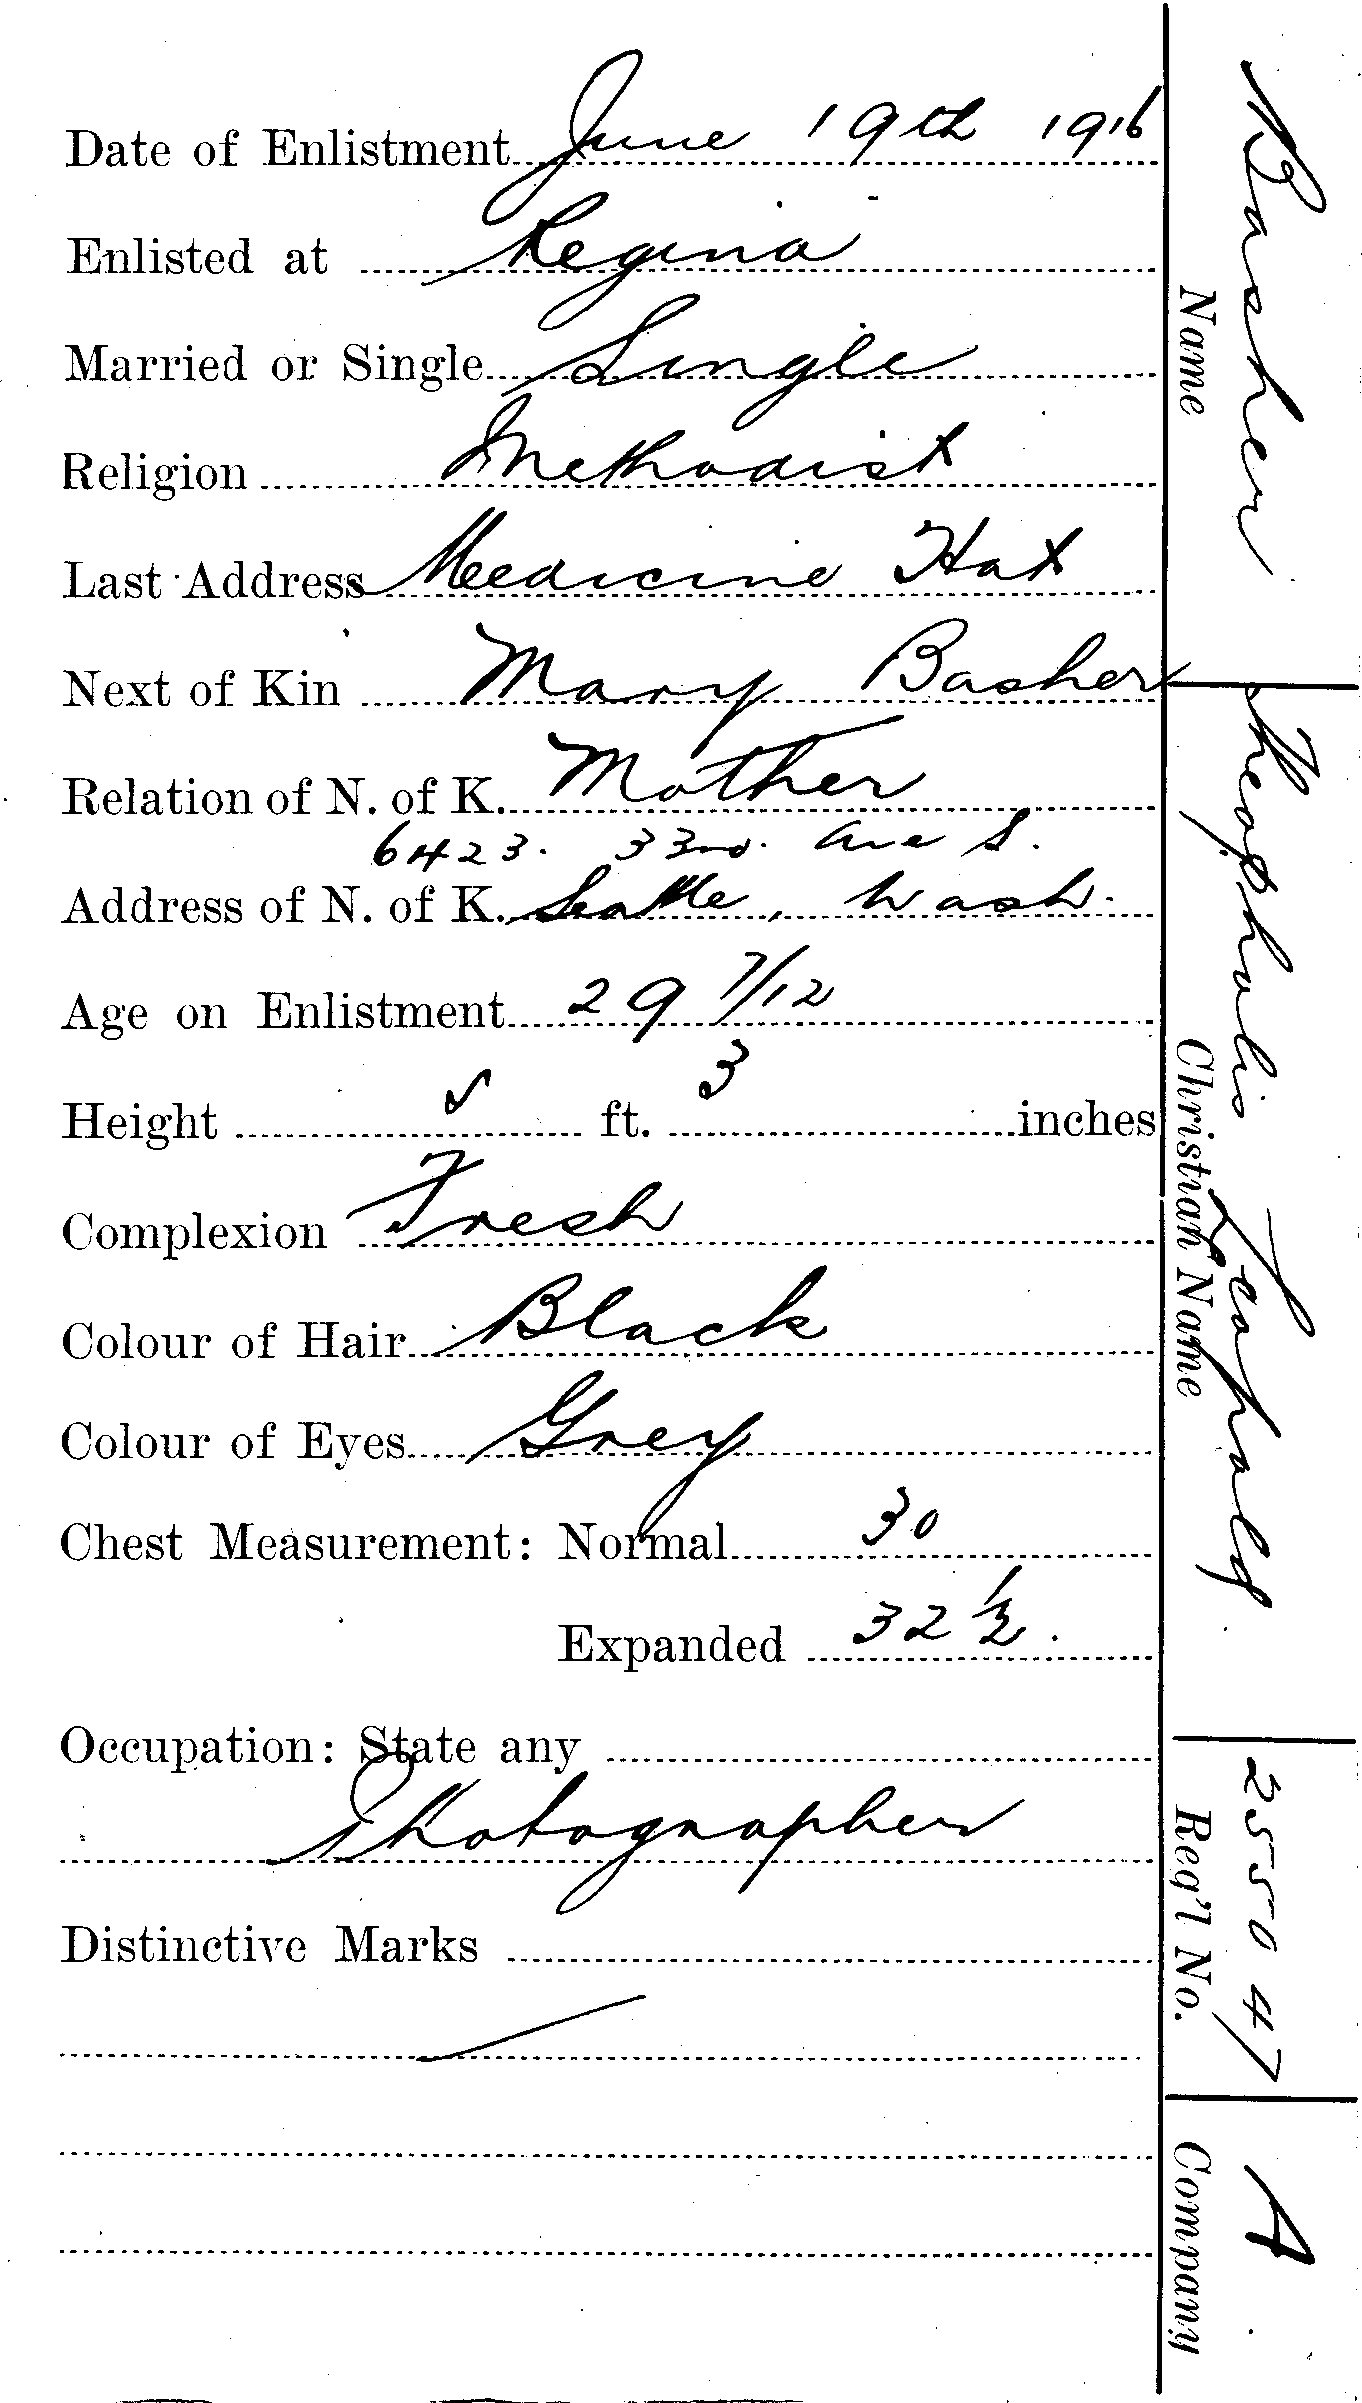 Date of Enlistment June 19th 1916
Enlisted at Regina
Married or Single Single
Religion Methodist
Last Address Medicine Hat
Next of Kin Mary Basher
Relation of N. of K. Mother
6423. 33rd. Ave S.
Address of N. of K. Seattle, Wash.
Age on Enlistment 29 7/12
Height 5 ft. 3 inches
Complexion Fresh
Colour of Hair Black
Colour of Eyes Grey
Chest Measurement: Normal 30
Expanded 32 1/2.
Occupation: State any
Photographer
Distinctive Marks
Basher
Name
Theopholis Leopold
Christian Name
255047
Reg'l No.
A
Company